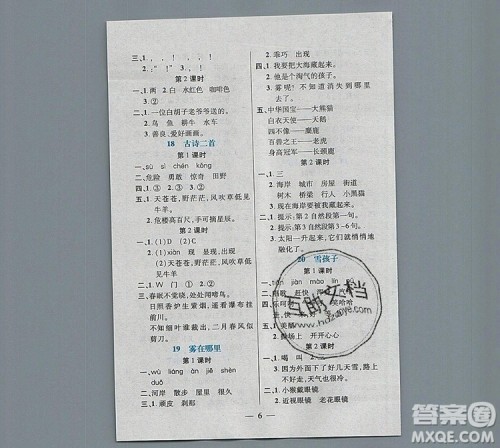 三、1.，！，！
2.:“！” 3.，！
第2课时
一、1.两 2.白 水红色 咖啡色
3.②
二、1.一位白胡子老爷爷送的。
2.鸟 鱼 耕牛 水车
3.善良、爱好画画。
18 古诗二首
第1课时
一、sù sì chén kǒng
二、危险 勇敢 惊奇 田野
三、1.③ 2.③ 3.②
四、1.天苍苍，野茫茫，风吹草低见
牛羊。
2.危楼高百尺，手可摘星辰。
第2课时
一、1.(1)D (2)C
2.(1)xiàn 现 显现，出现
(2)天苍苍，野茫茫，风吹草低
见牛羊。
二、1.W 门 2.① 3.①
三、春眠不觉晓，处处闻啼鸟。
日照香炉生紫烟，遥看瀑布挂
前川。
不知细叶谁裁出，二月春风似
剪刀。
19 雾在哪里
第1课时
一、wù liáng àn jiē shèn
duō
二、河岸 散步 屋里 很久
三、1.顽皮 刹那
2.乖巧 出现
四、1.我要把大海藏起来。
2.他是个淘气的孩子。
3.雾呢！不知道消失到哪里
去了。
五、中华国宝——大熊猫
白衣天使——天鹅
四不像——麋鹿
百兽之王——老虎
身高冠军——长颈鹿
第2课时
一、1.③
2.海岸 城市 房屋 街道
树木 桥梁 行人 小黑猫
3.现在海岸要被我藏起来。
二、1.提示：第2自然段第一句。
2.提示：第3自然段第3~6句。
3.太阳一升起来，它们就悄悄地
融化了。
20 雪孩子
第1课时
2.开开心心
第2课时
一、喝 叫
二、1.②
2.因为外面下了好几天雪，路上
结冰了，天气很寒冷。
三、1.小猴戴眼镜
2.近视眼镜 老花眼镜
6
互助文档
答案圈
MXQE.COM